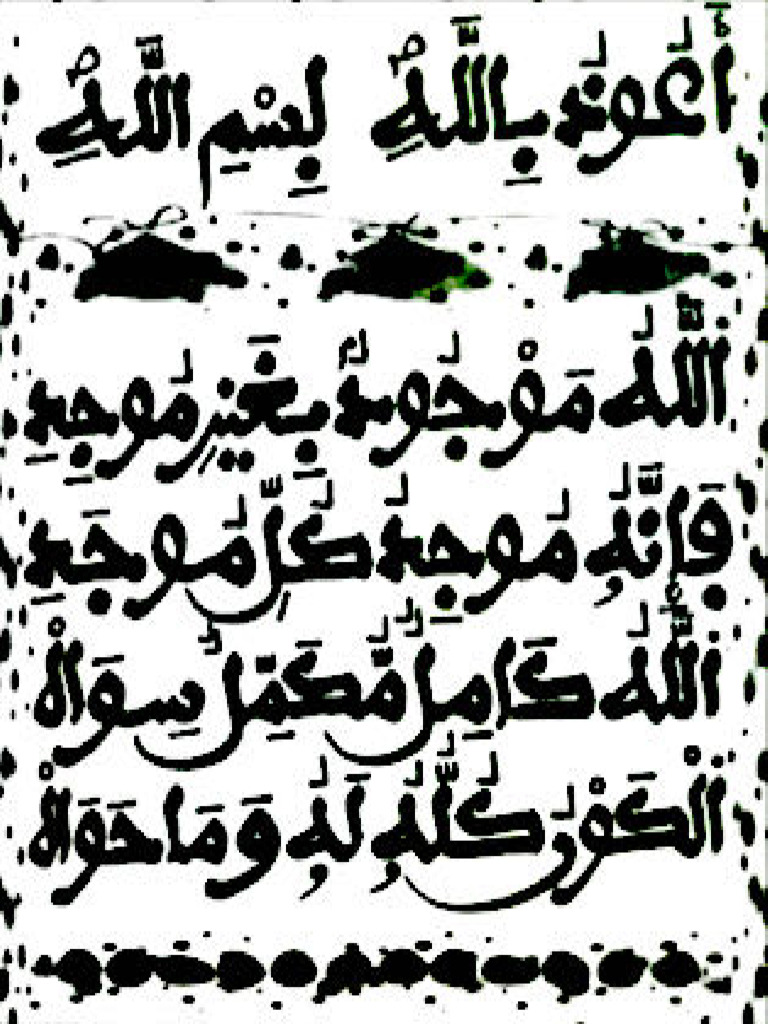 أَعُوذُ بِاللَّهِ بِسْمِ اللَّهِ
اللَّهُ مَوْجُودٌ بِغَيْرِ مُوجِدِ
فَإِنَّهُ مُوجِدُ كُلِّ مُوجَدِ
اللَّهُ كَامِلٌ مُّكَمِّلٌ سِوَاهْ
الْكَوْنُ كُلُّهُ لَهُ وَمَا حَوَاهْ